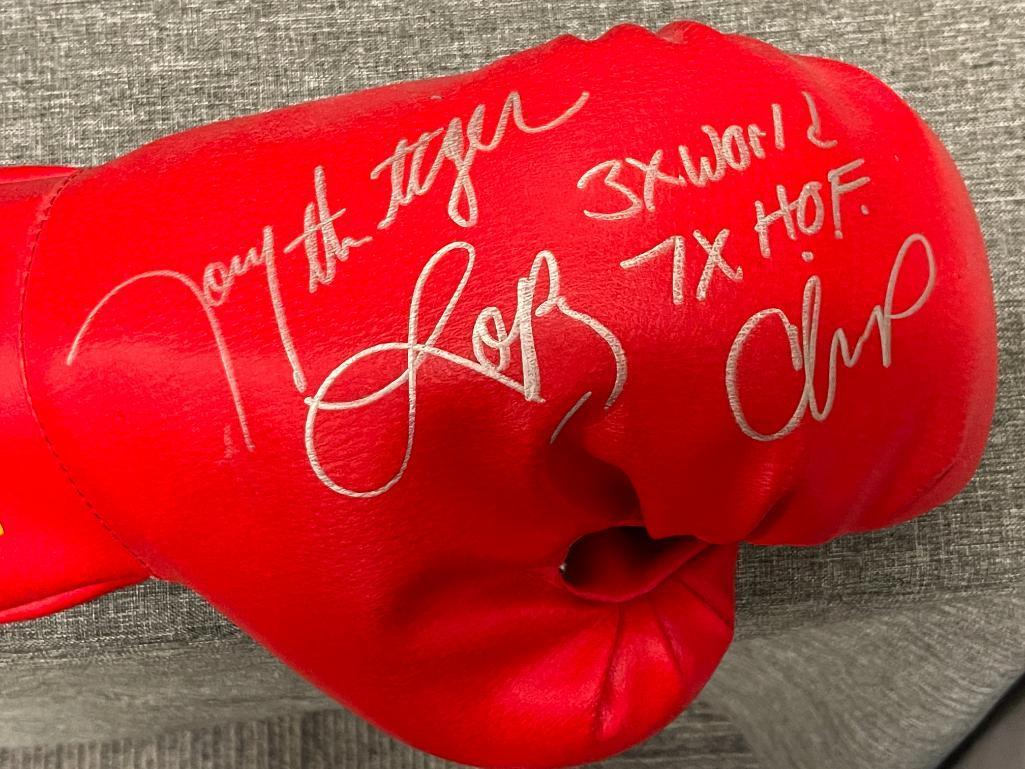 Tony the tiger
Lopz
3X World
7X H.O.F.
Chmp